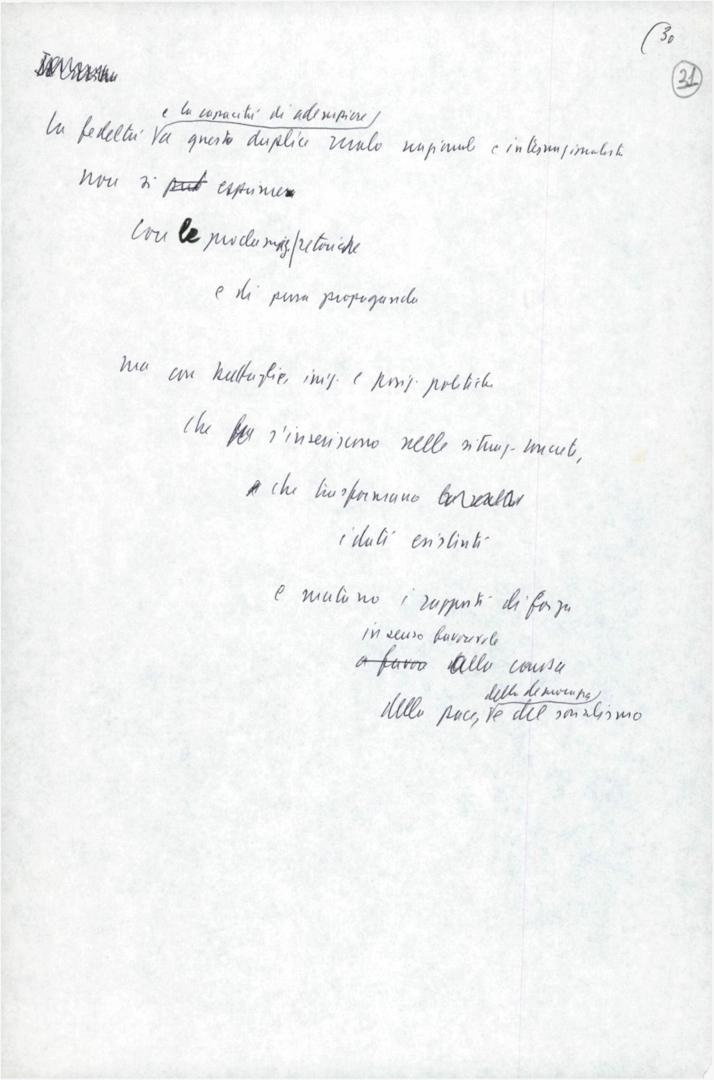 (30
31
e la capacità di adempiere
La fedeltà a questo duplice ruolo nazionale e internazionalista
non si può esprimere
con le proclamaz. retoriche
e di pura propaganda
ma con battaglie, iniz. e posiz. politiche
che s'inseriscono nelle situaz. concrete,
che trasformano
i dati esistenti
e mutano i rapporti di forza
in senso favorevole
a favore alla causa
della democrazia
della pace, e del socialismo